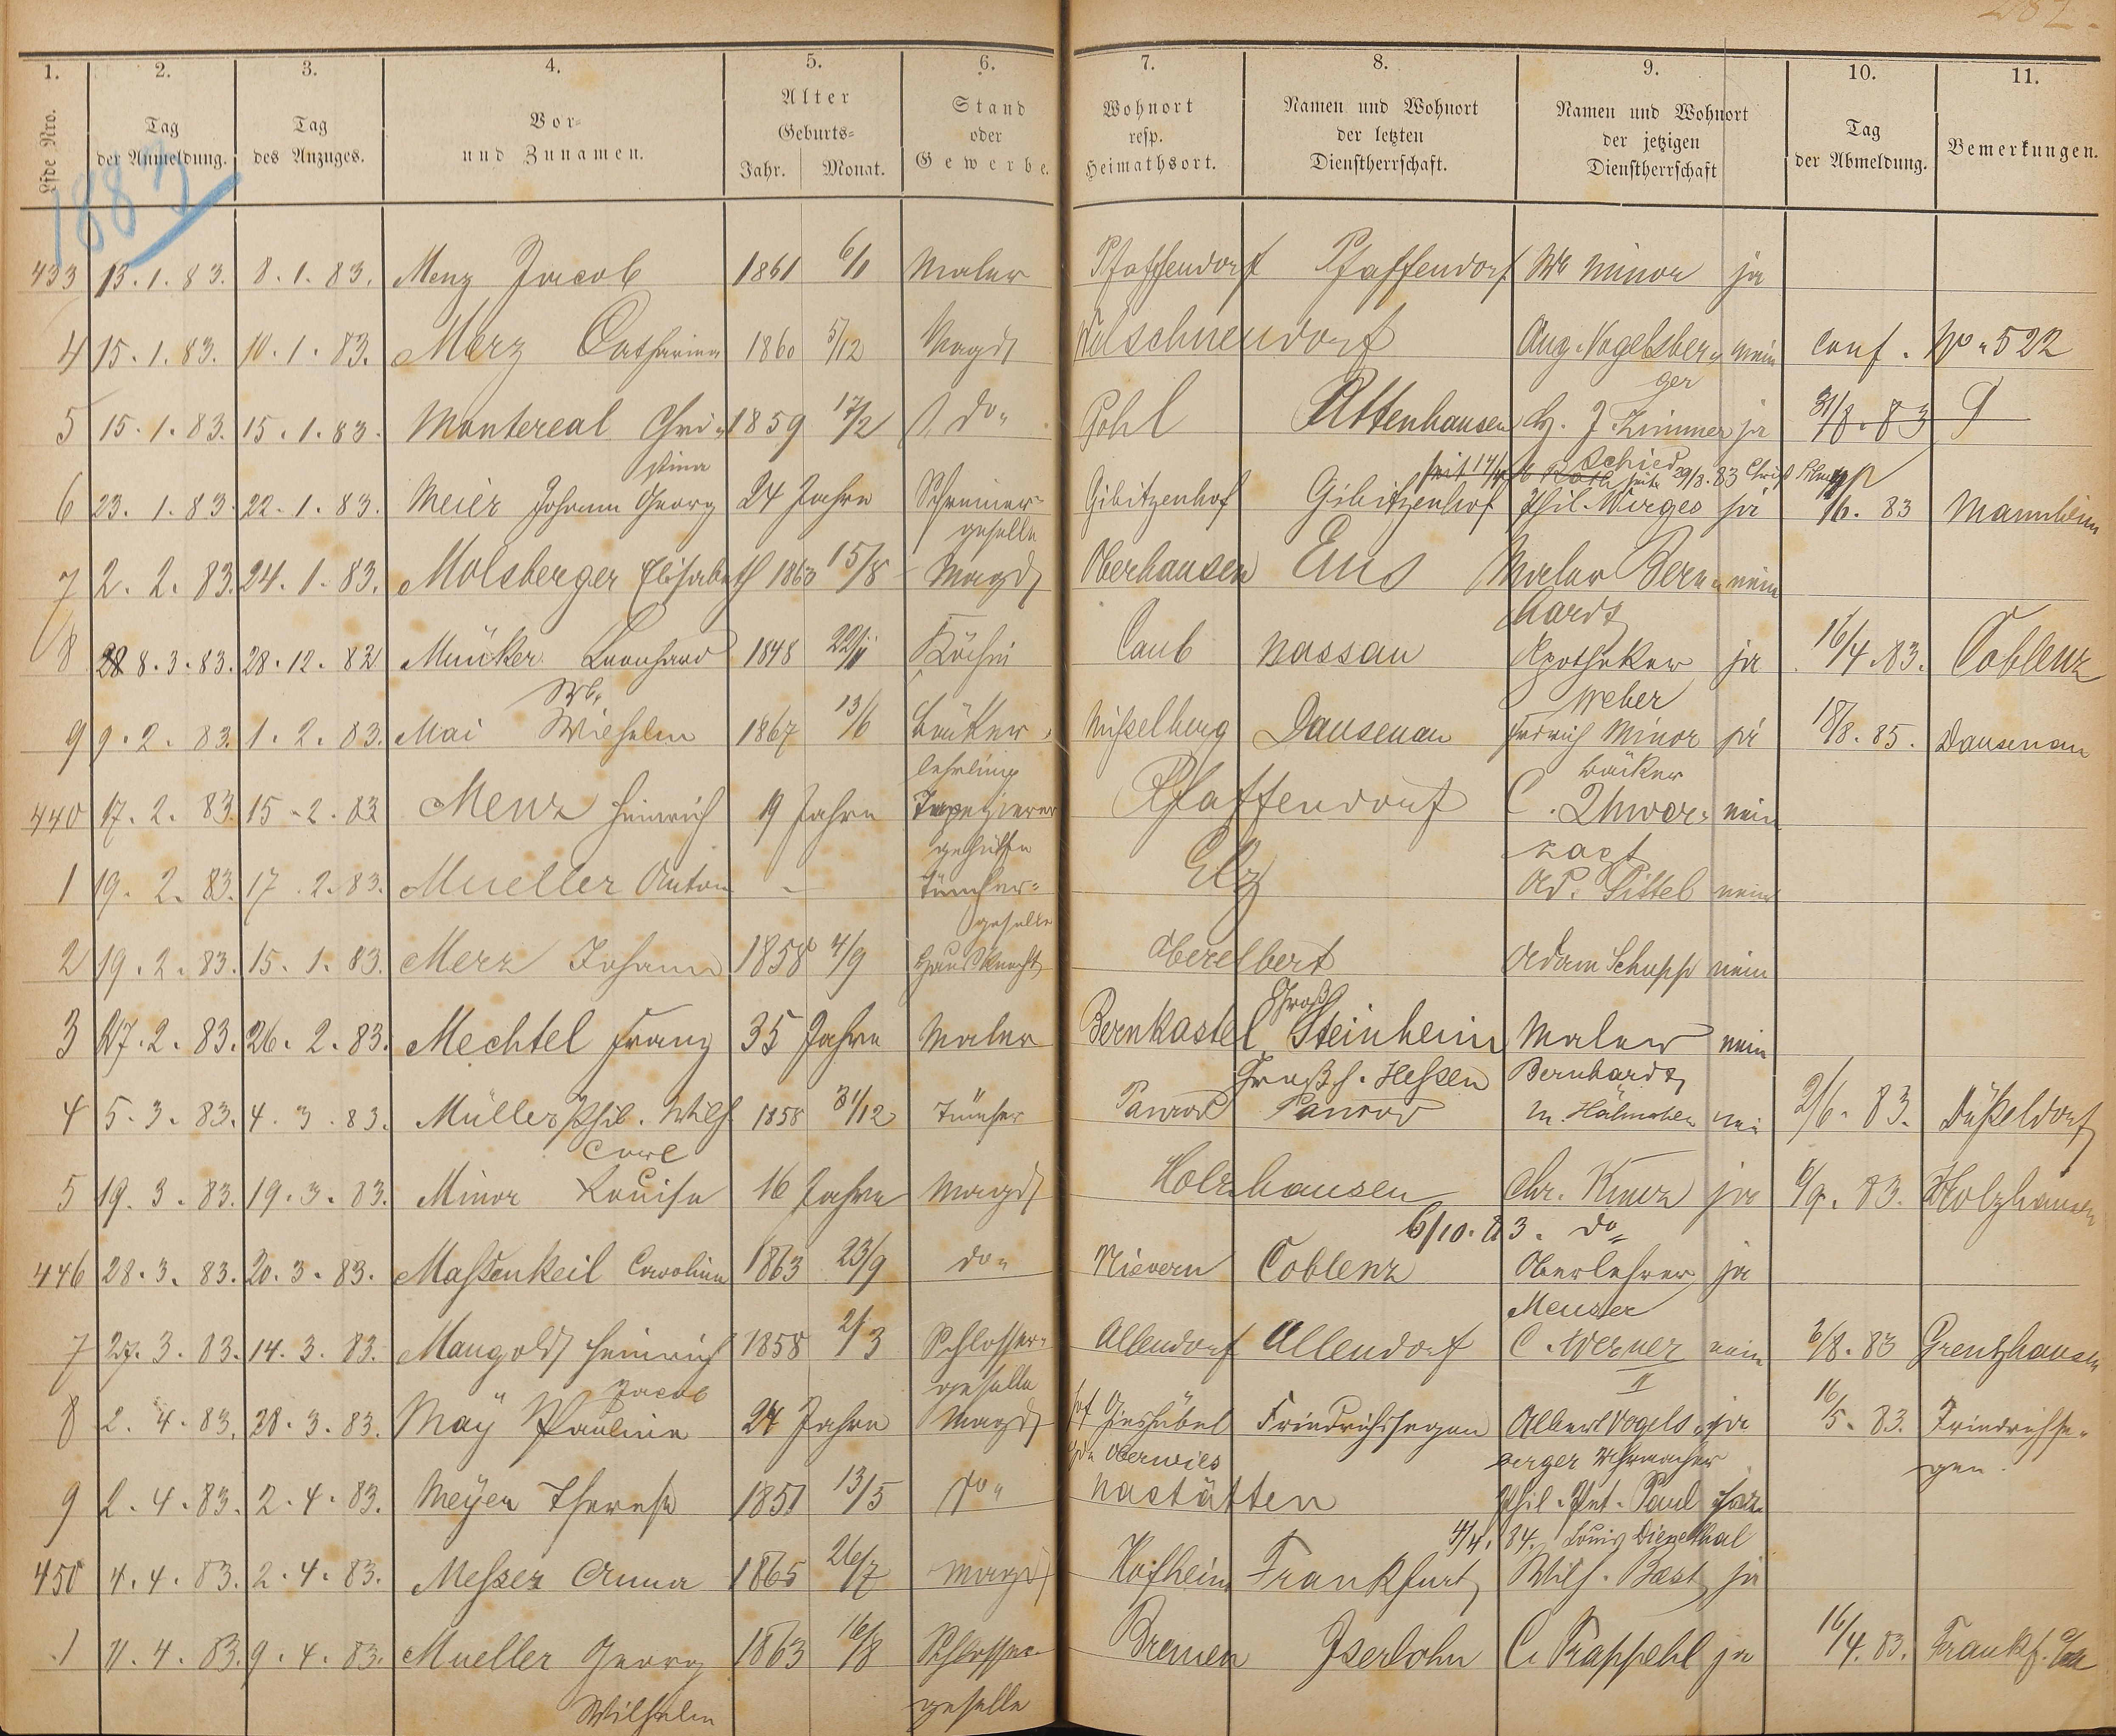 282.
1. 2. 3. 4. 5. 6. 7. 8. 9. 10. 11.
Lfde Nro. Tag der Anmeldung. Tag des Anzuges. Vor- und Zunamen. Alter Geburts- Jahr. Monat. Stand oder Gewerbe. Wohnort resp. Heimathsort. Namen und Wohnort der letzten Dienstherrschaft. Namen und Wohnort der jetzigen Dienstherrschaft Tag der Abmeldung. Bemerkungen.
1883
433 13.1.83. 8.1.83. Menz Jacob 1861 6/1 Maler Pfaffendorf Pfaffendorf Wb Minor ja
4 15.1.83. 10.1.83. Merz Catharina 1860 5/12 Magd Welschneudorf Aug. Vogelsber- nein conf. No 522
ger
5 15.1.83. 15.1.83. Montereal Chri- 1859 17/2 do Pohl Attenhausen J. Zimmer ja 31/8.83
stina schied
29/3.83
6 23.1.83. 22.1.83. Meier Johann Georg 24 Jahre Schreiner- Gibitzenhof Gibitzenhof Phil. Wirges ja /6.83 Mannheim
geselle
7 2.2.83. 24.1.83. Molsberger Elisabeth 1863 15/8 Magd Oberhausen Ems Maler Bern- nein
hardt
8 28 8.3.83. 28.12.82 Münker Leonhard 1848 22/11 Köchin Caub Nassau Apotheker ja 16/4.83. Coblenz
Wb. Weber
9 9.2.83. 1.2.83. Mai Wilhelm 1867 13/6 Bäcker- Misselberg Dausenau Fedrich Minor ja 18/8.85. Dausenau
lehrling Bäcker
440 17.2.83. 15.2.83 Menz Heinrich 19 Jahre Tapezierer Pfaffendorf C. Thwor- nein
gehülfe zagt
1 19.2.83. 17.2.83. Mueller Anton - Tüncher- Elz Ad. Pittel nein
geselle
2 19.2.83. 15.1.83. Merz Johann 1858 4/9 Hausknecht Oberelbert Adam Schupp nein
3 27.2.83. 26.2.83. Mechtel Franz 35 Jahre Maler Bernkastel Groß Steinheim Maler nein
Großh. Hessen Bernhardt
4 5.3.83. 4.3.83. Müller Phil. Wilh. 1858 31/12 Tüncher Panrod Panrod 2/6.83. Düsseldorf
Carl
5 19.3.83. 19.3.83. Minor Louise 16 Jahre Magd Holzhausen Chr. Kunz ja 6/9.83. Holzhausen
6/10.83. do
446 28.3.83. 20.3.83. Massenkeil Caroline 1863 23/9 do Nievern Coblenz Oberlehrer ja
Meuser
7 27.3.83. 14.3.83. Mangold Heinrich 1858 2/3 Schlosser- Allendorf Allendorf C. Werner nein 6/8.83 Grentzhausen
Jacob geselle II
8 2.4.83. 28.3.83. May Pauline 24 Jahre Magd Hof Gieshübel Friedrichssegen Albert Vogels- ja 16/5.83. Friedrichsse-
Oberwies berger Uhrmacher gen.
9 2.4.83. 2.4.83. Meyer Therese 1851 13/5 do Nastätten Phil. Pet. Paul
4/4.84. Louis Diezethal
450 4.4.83. 2.4.83. Messer Anna 1865 26/7 Magd Hofheim Frankfurt Wilh. Bast ja
1 11.4.83. 9.4.83. Mueller Georg 1863 16/8 Schlosser- Bremen Iserlohn C. Trappehl ja 16/4.83. Frankf. a/M
Wilhelm geselle